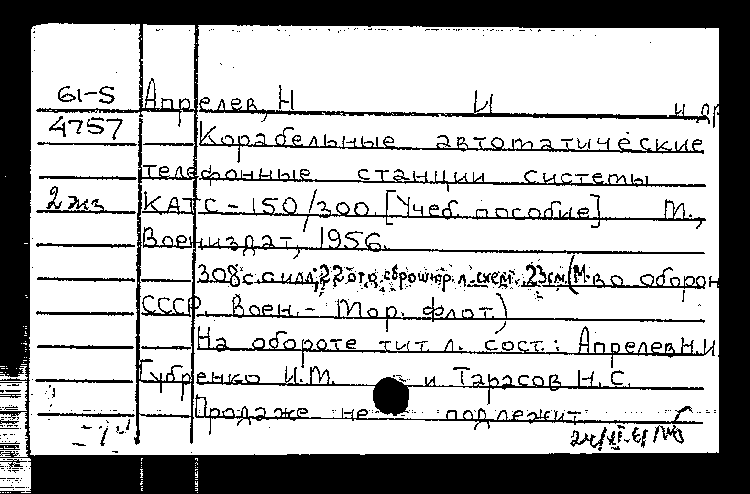 61-5 Апрелев, Н И и др
4757 Корабельные автоматические
телефонные станции системы
2 экз КАТС-150/300. [Учеб. пособие] М.,
Воениздат, 1956.
308 с. с илл; 22 отд. сброшюр. л. схем. 23 см. (М-во оборон
СССР. Воен.-Мор. флот)
На обороте тит. л. сост.: Апрелев Н.И
Губренко И.М. и Тарасов Н.С.
Продаже не подлежит